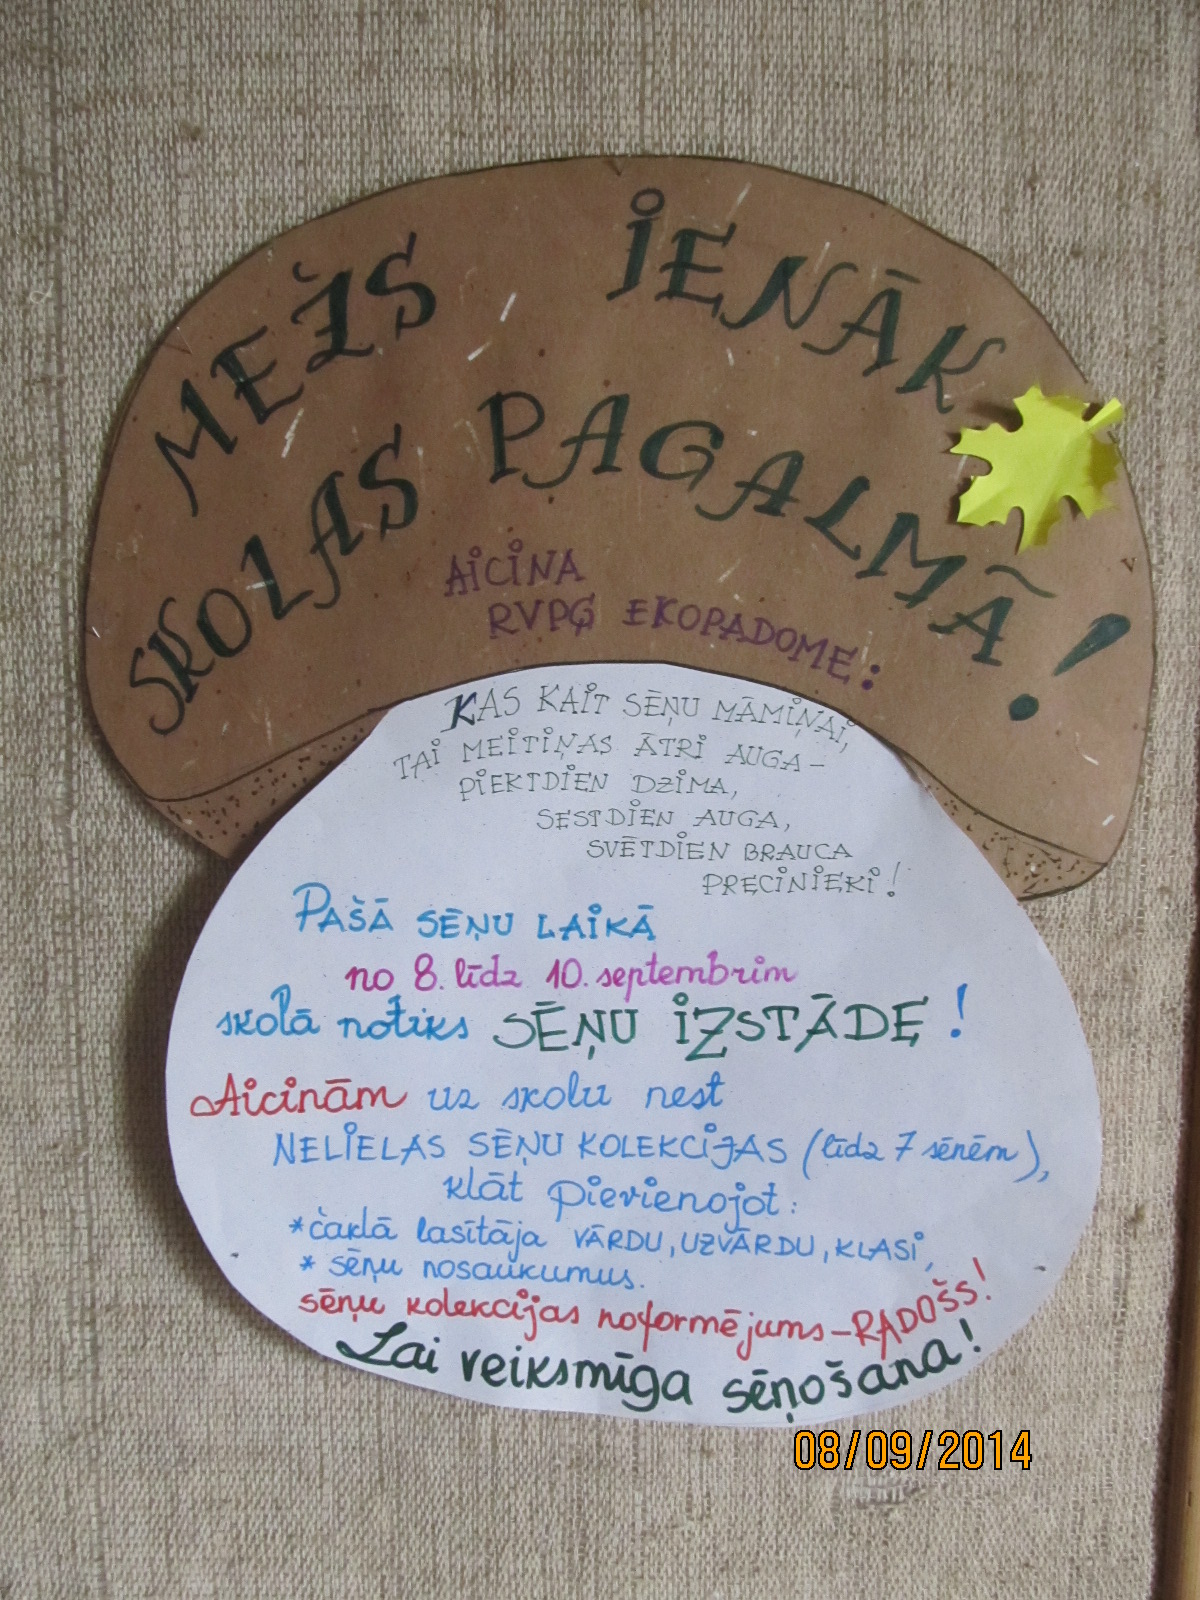 MEŽS IENĀK
SKOLAS PAGALMĀ!
AICINA
RVPĢ EKOPADOME:
KAS KAIT SĒŅU MĀMIŅAI,
TAI MEITIŅAS ĀTRI AUGA –
PIEKTDIEN DZIMA,
SESTDIEN AUGA,
SVĒTDIEN BRAUCA
PRECINIEKI!
PAŠĀ SĒŅU LAIKĀ
no 8. līdz 10. septembrim
skolā notiks SĒŅU IZSTĀDE!
Aicinām uz skolu nest
NELIELAS SĒŅU KOLEKCIJAS (līdz 7 sēnēm),
klāt pievienojot:
*čaklā lasītāja VĀRDU, UZVĀRDU, KLASI,
* sēņu nosaukumus.
sēņu kolekcijas noformējums – RADOŠS!
Lai veiksmīga sēņošana!
08/09/2014